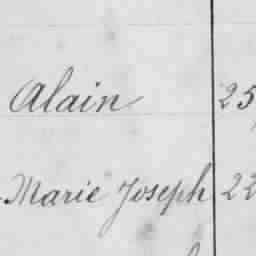 Alain 25
Marie Joseph 22